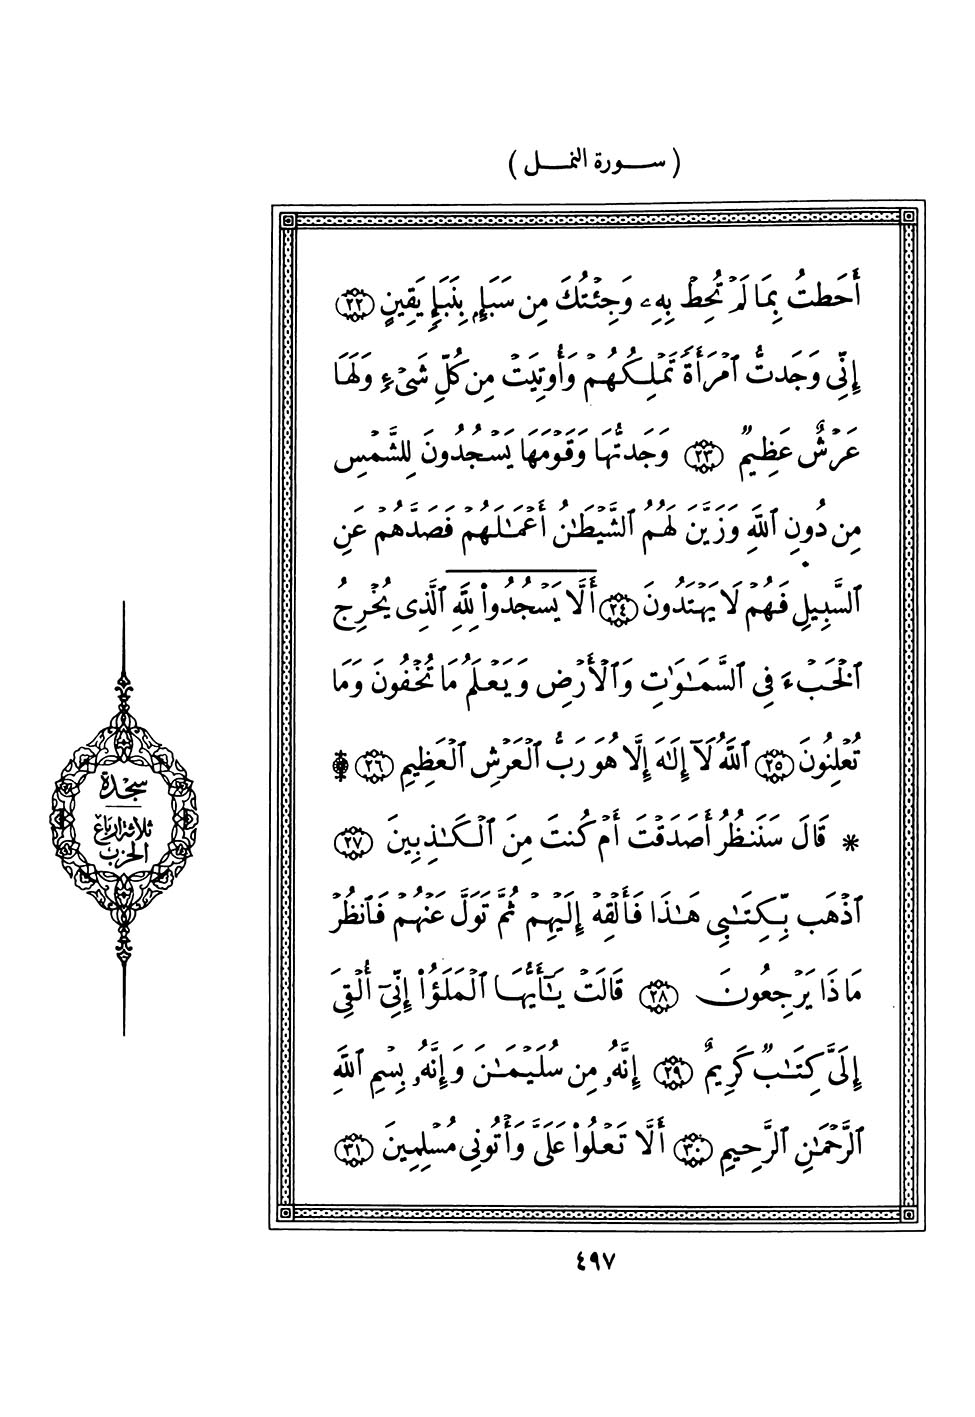 ( سورة النمل )
أَحَطتُ بِمَا لَمْ تُحِطْ بِهِۦ وَجِئْتُكَ مِن سَبَإٍۭ بِنَبَإٍ يَقِينٍ ۝٢٢
إِنِّي وَجَدتُّ ٱمْرَأَةً تَمْلِكُهُمْ وَأُوتِيَتْ مِن كُلِّ شَىْءٍ وَلَهَا
عَرْشٌ عَظِيمٌ ۝٢٣ وَجَدتُّهَا وَقَوْمَهَا يَسْجُدُونَ لِلشَّمْسِ
مِن دُونِ ٱللَّهِ وَزَيَّنَ لَهُمُ ٱلشَّيْطَـٰنُ أَعْمَـٰلَهُمْ فَصَدَّهُمْ عَنِ
ٱلسَّبِيلِ فَهُمْ لَا يَهْتَدُونَ ۝٢٤ أَلَّا يَسْجُدُوا۟ لِلَّهِ ٱلَّذِى يُخْرِجُ
ٱلْخَبْءَ فِى ٱلسَّمَـٰوَٰتِ وَٱلْأَرْضِ وَيَعْلَمُ مَا تُخْفُونَ وَمَا
تُعْلِنُونَ ۝٢٥ ٱللَّهُ لَآ إِلَـٰهَ إِلَّا هُوَ رَبُّ ٱلْعَرْشِ ٱلْعَظِيمِ ۝٢٦ ۩
* قَالَ سَنَنظُرُ أَصَدَقْتَ أَمْ كُنتَ مِنَ ٱلْكَـٰذِبِينَ ۝٢٧
ٱذْهَب بِّكِتَـٰبِى هَـٰذَا فَأَلْقِهْ إِلَيْهِمْ ثُمَّ تَوَلَّ عَنْهُمْ فَٱنظُرْ
مَاذَا يَرْجِعُونَ ۝٢٨ قَالَتْ يَـٰٓأَيُّهَا ٱلْمَلَؤُا۟ إِنِّىٓ أُلْقِىَ
إِلَىَّ كِتَـٰبٌ كَرِيمٌ ۝٢٩ إِنَّهُۥ مِن سُلَيْمَـٰنَ وَإِنَّهُۥ بِسْمِ ٱللَّهِ
ٱلرَّحْمَـٰنِ ٱلرَّحِيمِ ۝٣٠ أَلَّا تَعْلُوا۟ عَلَىَّ وَأْتُونِى مُسْلِمِينَ ۝٣١
سجدة
ثلاثة ارباع
الحزب
٤٩٧